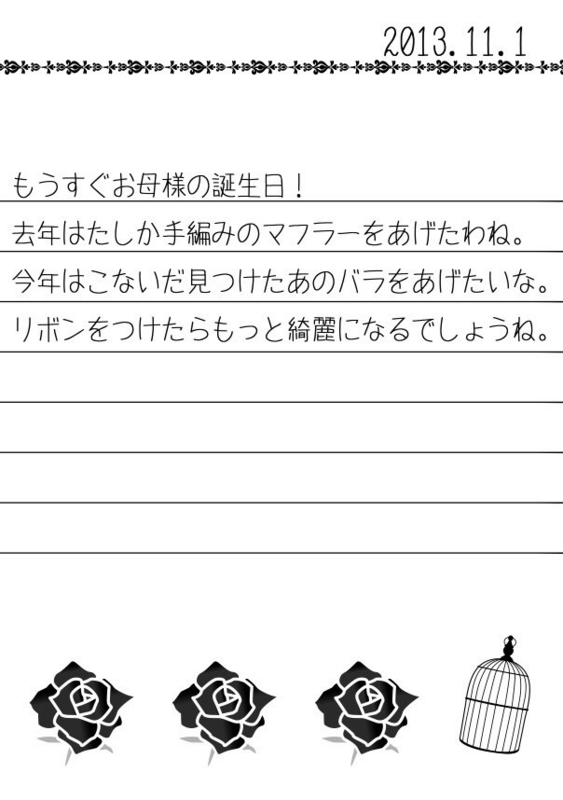 2013.11.1
もうすぐお母様の誕生日！
去年はたしか手編みのマフラーをあげたわね。
今年はこないだ見つけたあのバラをあげたいな。
リボンをつけたらもっと綺麗になるでしょうね。